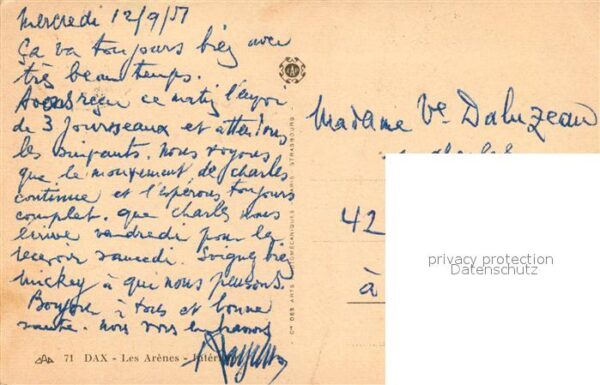 Mercredi 12/9/51
Ça va toujours bien avec
très beau temps.
Avons reçu ce matin l'envoi
de 3 journeaux et attendons
les suivants. nous voyons
que le mouvement de charles
continue et l'espérons toujours
complet. que charles nous
écrive vendredi pour le
recevoir samedi. Soignez bien
mickey à qui nous pensons.
Bonjour à tous et bonne
santé. nous vous embrassons
Madame Ve Daluzeau
42
à
71 DAX - Les Arènes - Intérieur
Cie DES ARTS PHOTOMÉCANIQUES PARIS STRASBOURG
privacy protection
Datenschutz